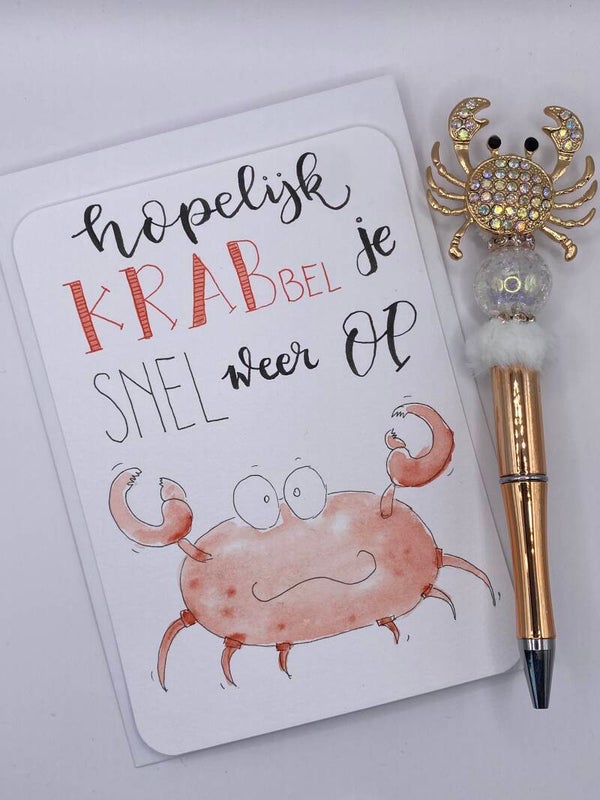 hopelijk
KRABBEL je
SNEL weer OP